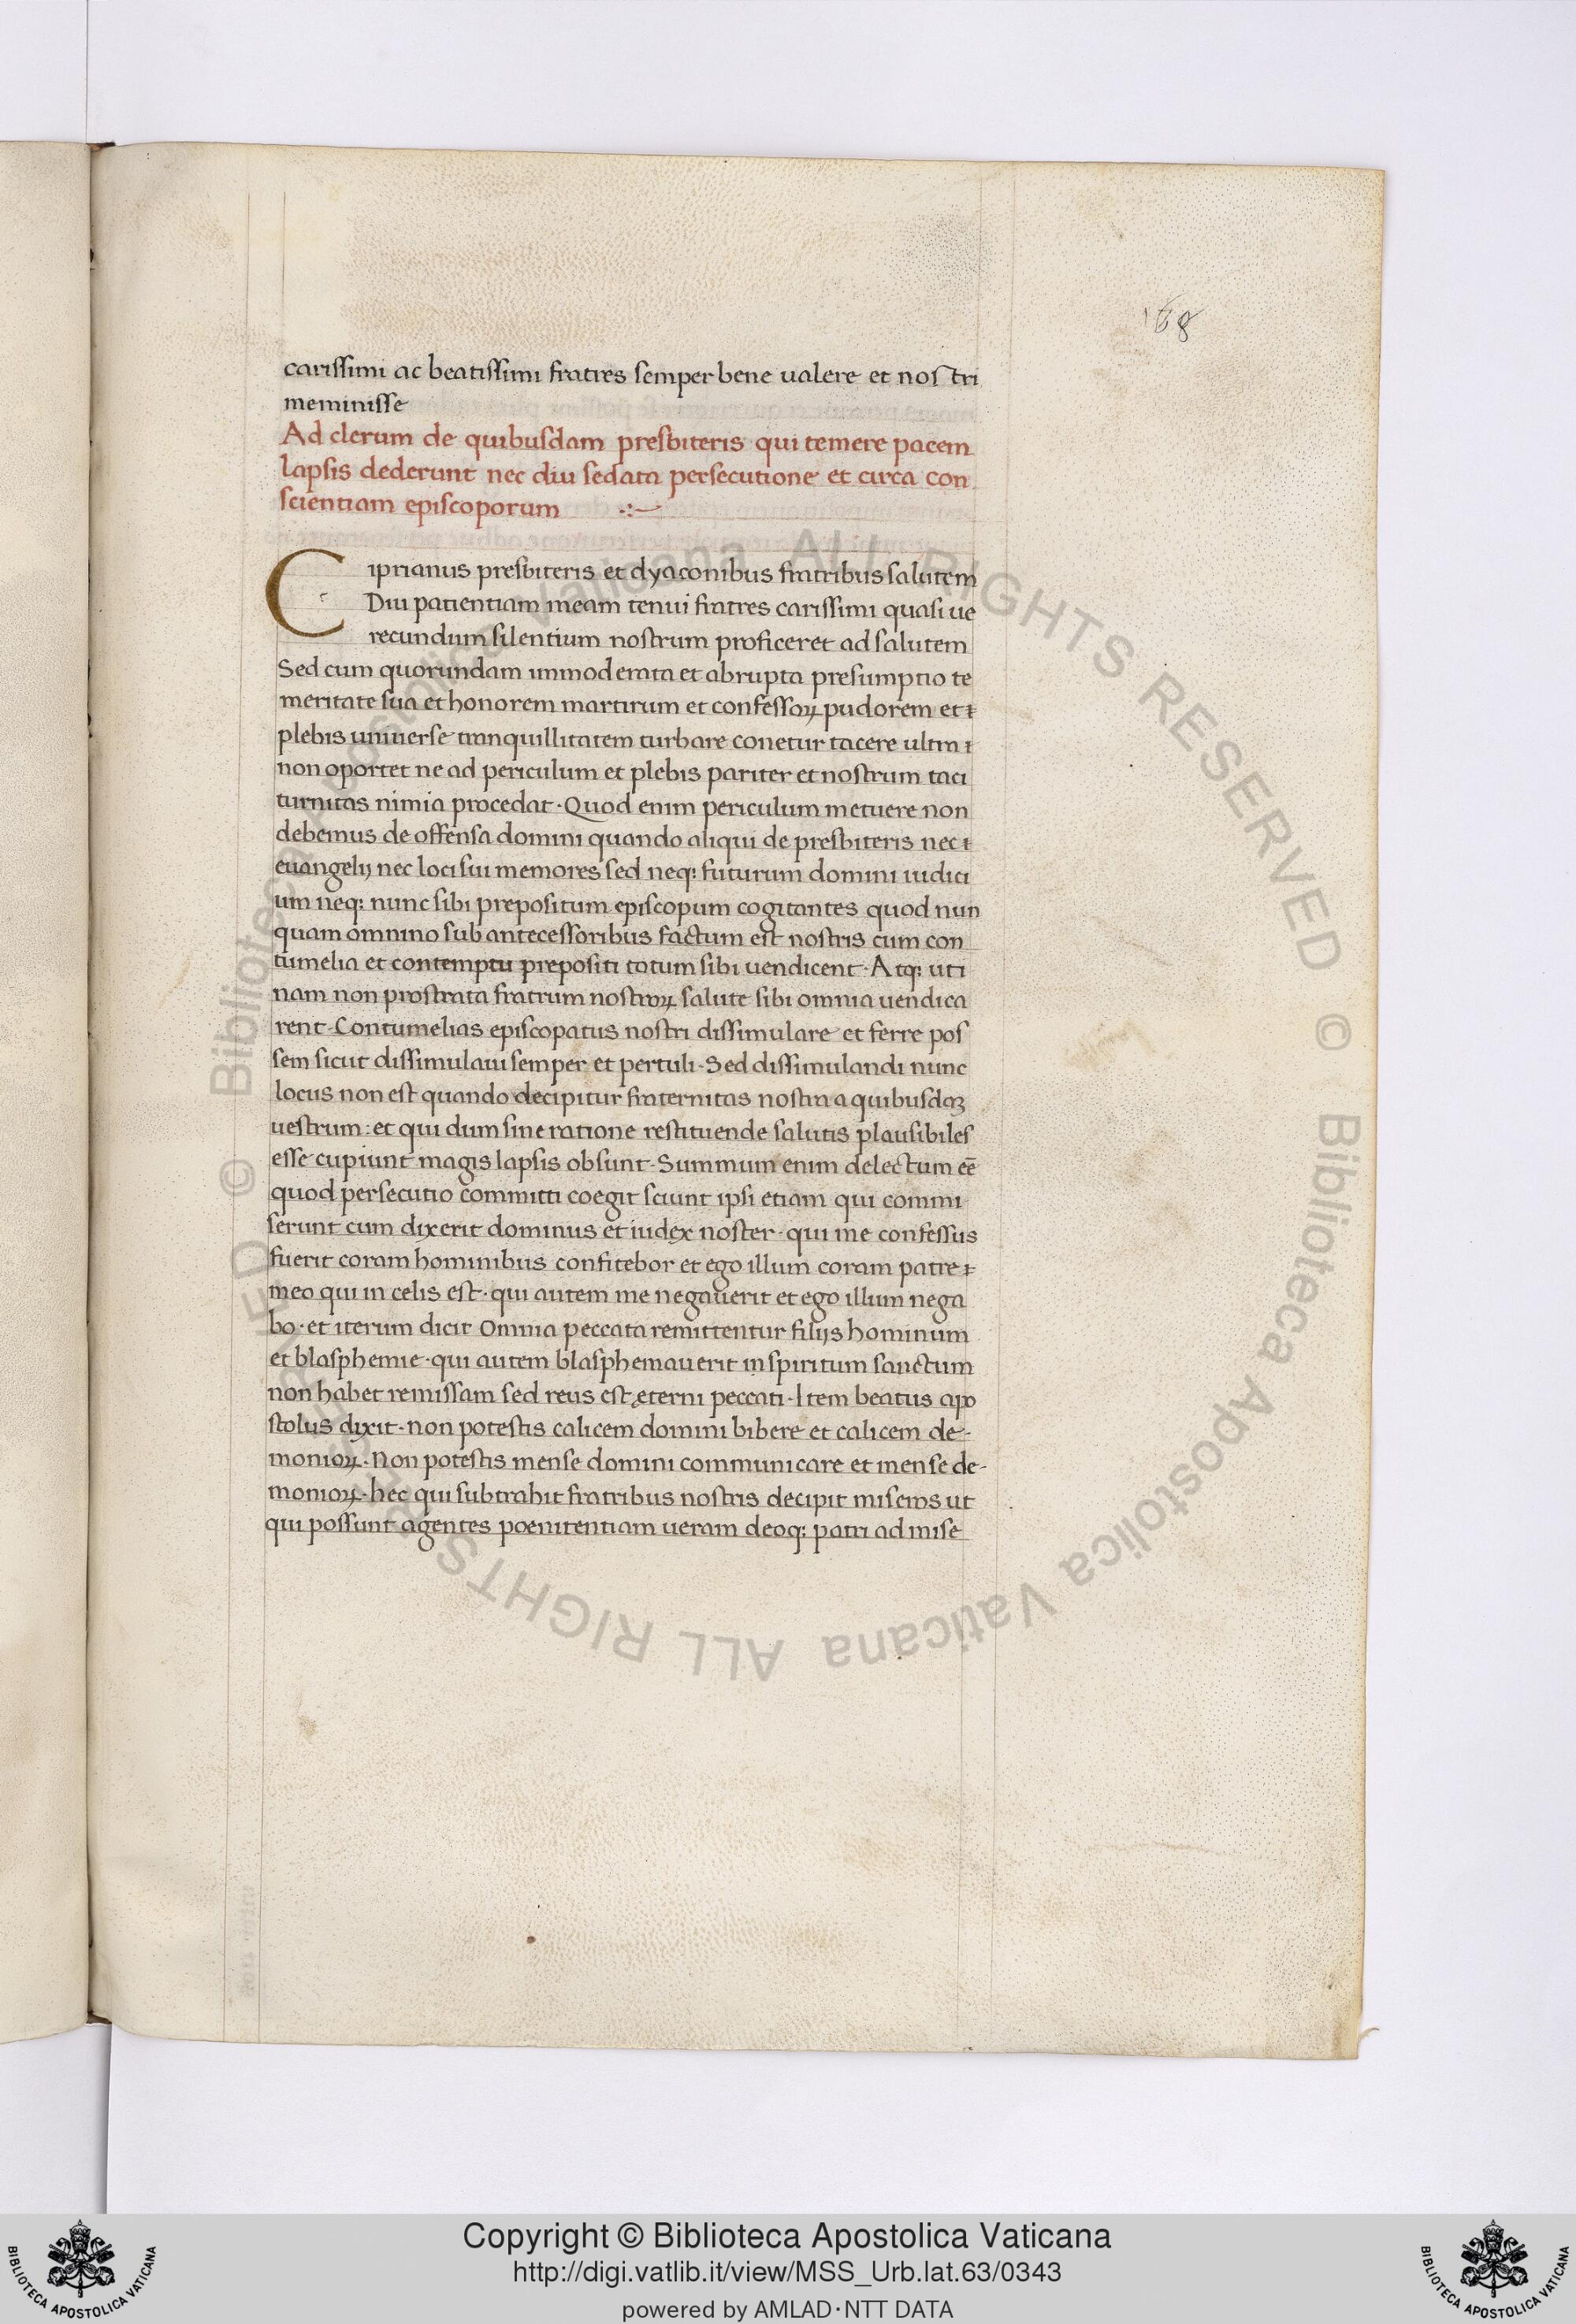 168
carissimi ac beatissimi fratres semper bene ualere et nostri
meminisse
Ad clerum de quibusdam presbiteris qui temere pacem
lapsis dederunt nec diu sedata persecutione et circa con
scientiam episcoporum
Ciprianus presbiteris et dyaconibus fratribus salutem
Diu patientiam meam tenui fratres carissimi quasi ue
recundum silentium nostrum proficeret ad salutem
Sed cum quorundam immoderata et abrupta presumptio te
meritate sua et honorem martirum et confessoꝝ pudorem et
plebis uniuerse tranquillitatem turbare conetur tacere ultra
non oportet ne ad periculum et plebis pariter et nostrum taci
turnitas nimia procedat · Quod enim periculum metuere non
debemus de offensa domini quando aliqui de presbiteris nec
euangelij nec loci sui memores sed neq: futurum domini iudici
um neq: nunc sibi prepositum episcopum cogitantes quod nun
quam omnino sub antecessoribus factum est nostris cum con
tumelia et contemptu prepositi totum sibi uendicent · Atq: uti
nam non prostrata fratrum nostroꝝ salute sibi omnia uendica
rent · Contumelias episcopatus nostri dissimulare et ferre pos
sem sicut dissimulaui semper et pertuli · Sed dissimulandi nunc
locus non est quando decipitur fraternitas nostra a quibusdaꝫ
uestrum : et qui dum sine ratione restituende salutis plausibiles
esse cupiunt magis lapsis obsunt · Summum enim delectum eē
quod persecutio committi coegit sciunt ipsi etiam qui commi
serunt cum dixerit dominus et iudex noster · qui me confessus
fuerit coram hominibus confitebor et ego illum coram patre
meo qui in celis est · qui autem me negauerit et ego illum nega
bo · et iterum dicit Omnia peccata remittentur filijs hominum
et blasphemie · qui autem blasphemauerit in spiritum sanctum
non habet remissam sed reus est ęterni peccati · Item beatus apo
stolus dixit · non potestis calicem domini bibere et calicem de-
monioꝝ · Non potestis mense domini communicare et mense de-
monioꝝ · hec qui subtrahit fratribus nostris decipit miseros ut
qui possunt agentes poenitentiam ueram deoq: patri ad mise
© Biblioteca Apostolica Vaticana ALL RIGHTS RESERVED © Biblioteca Apostolica Vaticana ALL RIGHTS RESERVED
Copyright © Biblioteca Apostolica Vaticana
http://digi.vatlib.it/view/MSS_Urb.lat.63/0343
powered by AMLAD·NTT DATA
BIBLIOTECA APOSTOLICA VATICANA
BIBLIOTECA APOSTOLICA VATICANA